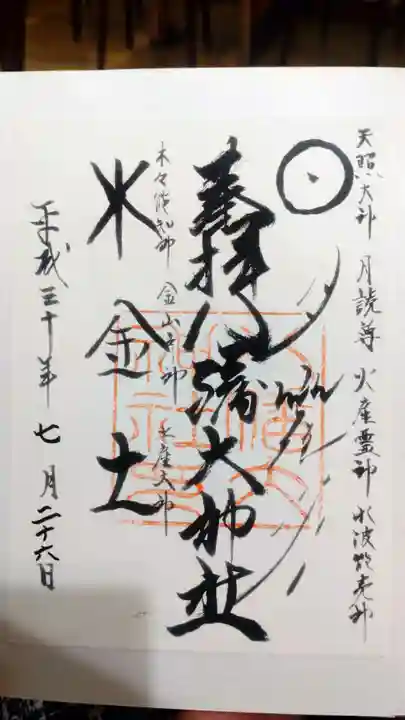 天照大神 月読尊 火産霊神 水波能売神
奉拝 八幡大神社
木々能知神 金山彦神 土産大神
水 金 土
平成三十年 七月二十六日